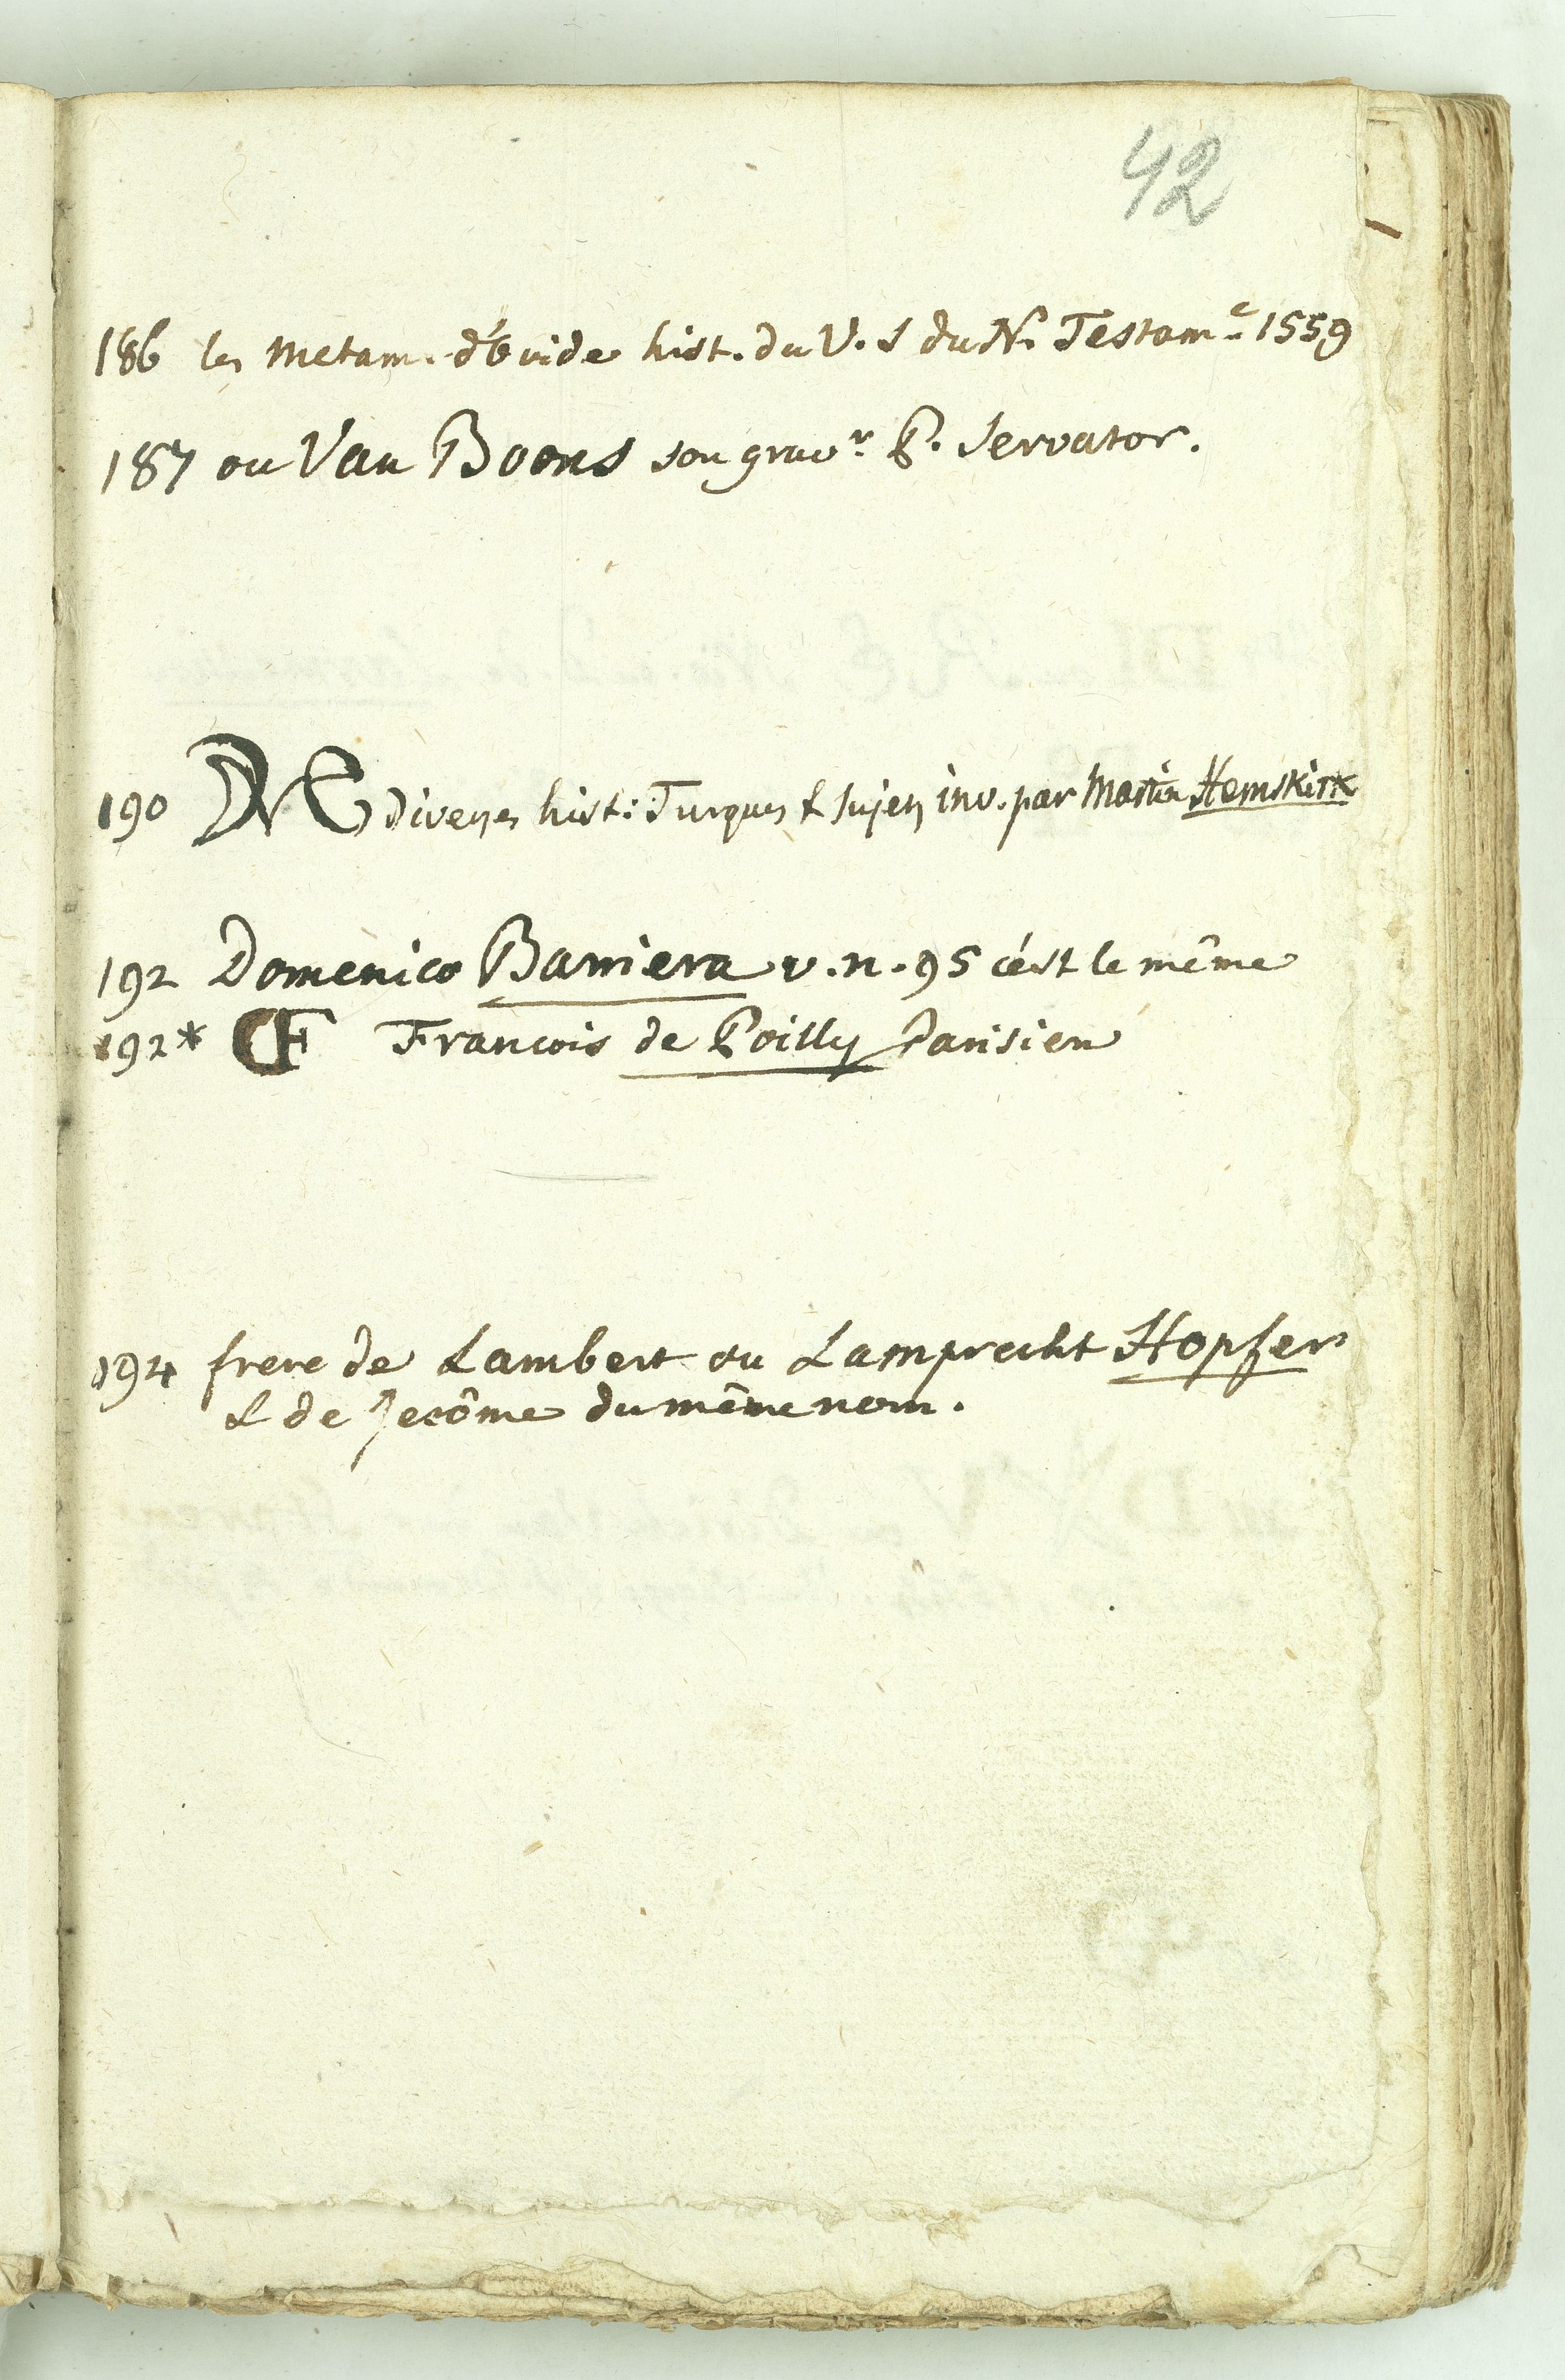 42
186 les metam. d'Ovide hist. du V. & du N. Testam.e 1559
187 ou Van Boons son grav.r P. Servator.
190 diverses hist: Turques & sujets inv. par Martin Hemskirk
192 Domenico Barriera v. n. 95 c'est le même
192* CF François de Poilly Parisien
194 frere de Lambert ou Lamprecht Hopfer
& de Jerôme du même nom.